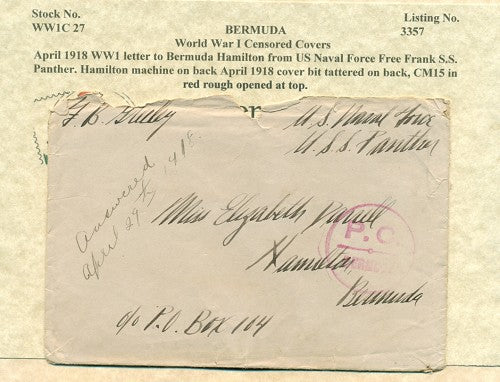 Stock No.
WW1C 27
BERMUDA
World War I Censored Covers
Listing No.
3357
April 1918 WW1 letter to Bermuda Hamilton from US Naval Force Free Frank S.S.
Panther. Hamilton machine on back April 1918 cover bit tattered on back, CM15 in
red rough opened at top.
er
U.S. Naval Force
U.S.S. Panther
Answered
April 29 1918.
Miss Elizabeth
P. C.
Hamilton
Bermuda
c/o P.O. Box 104